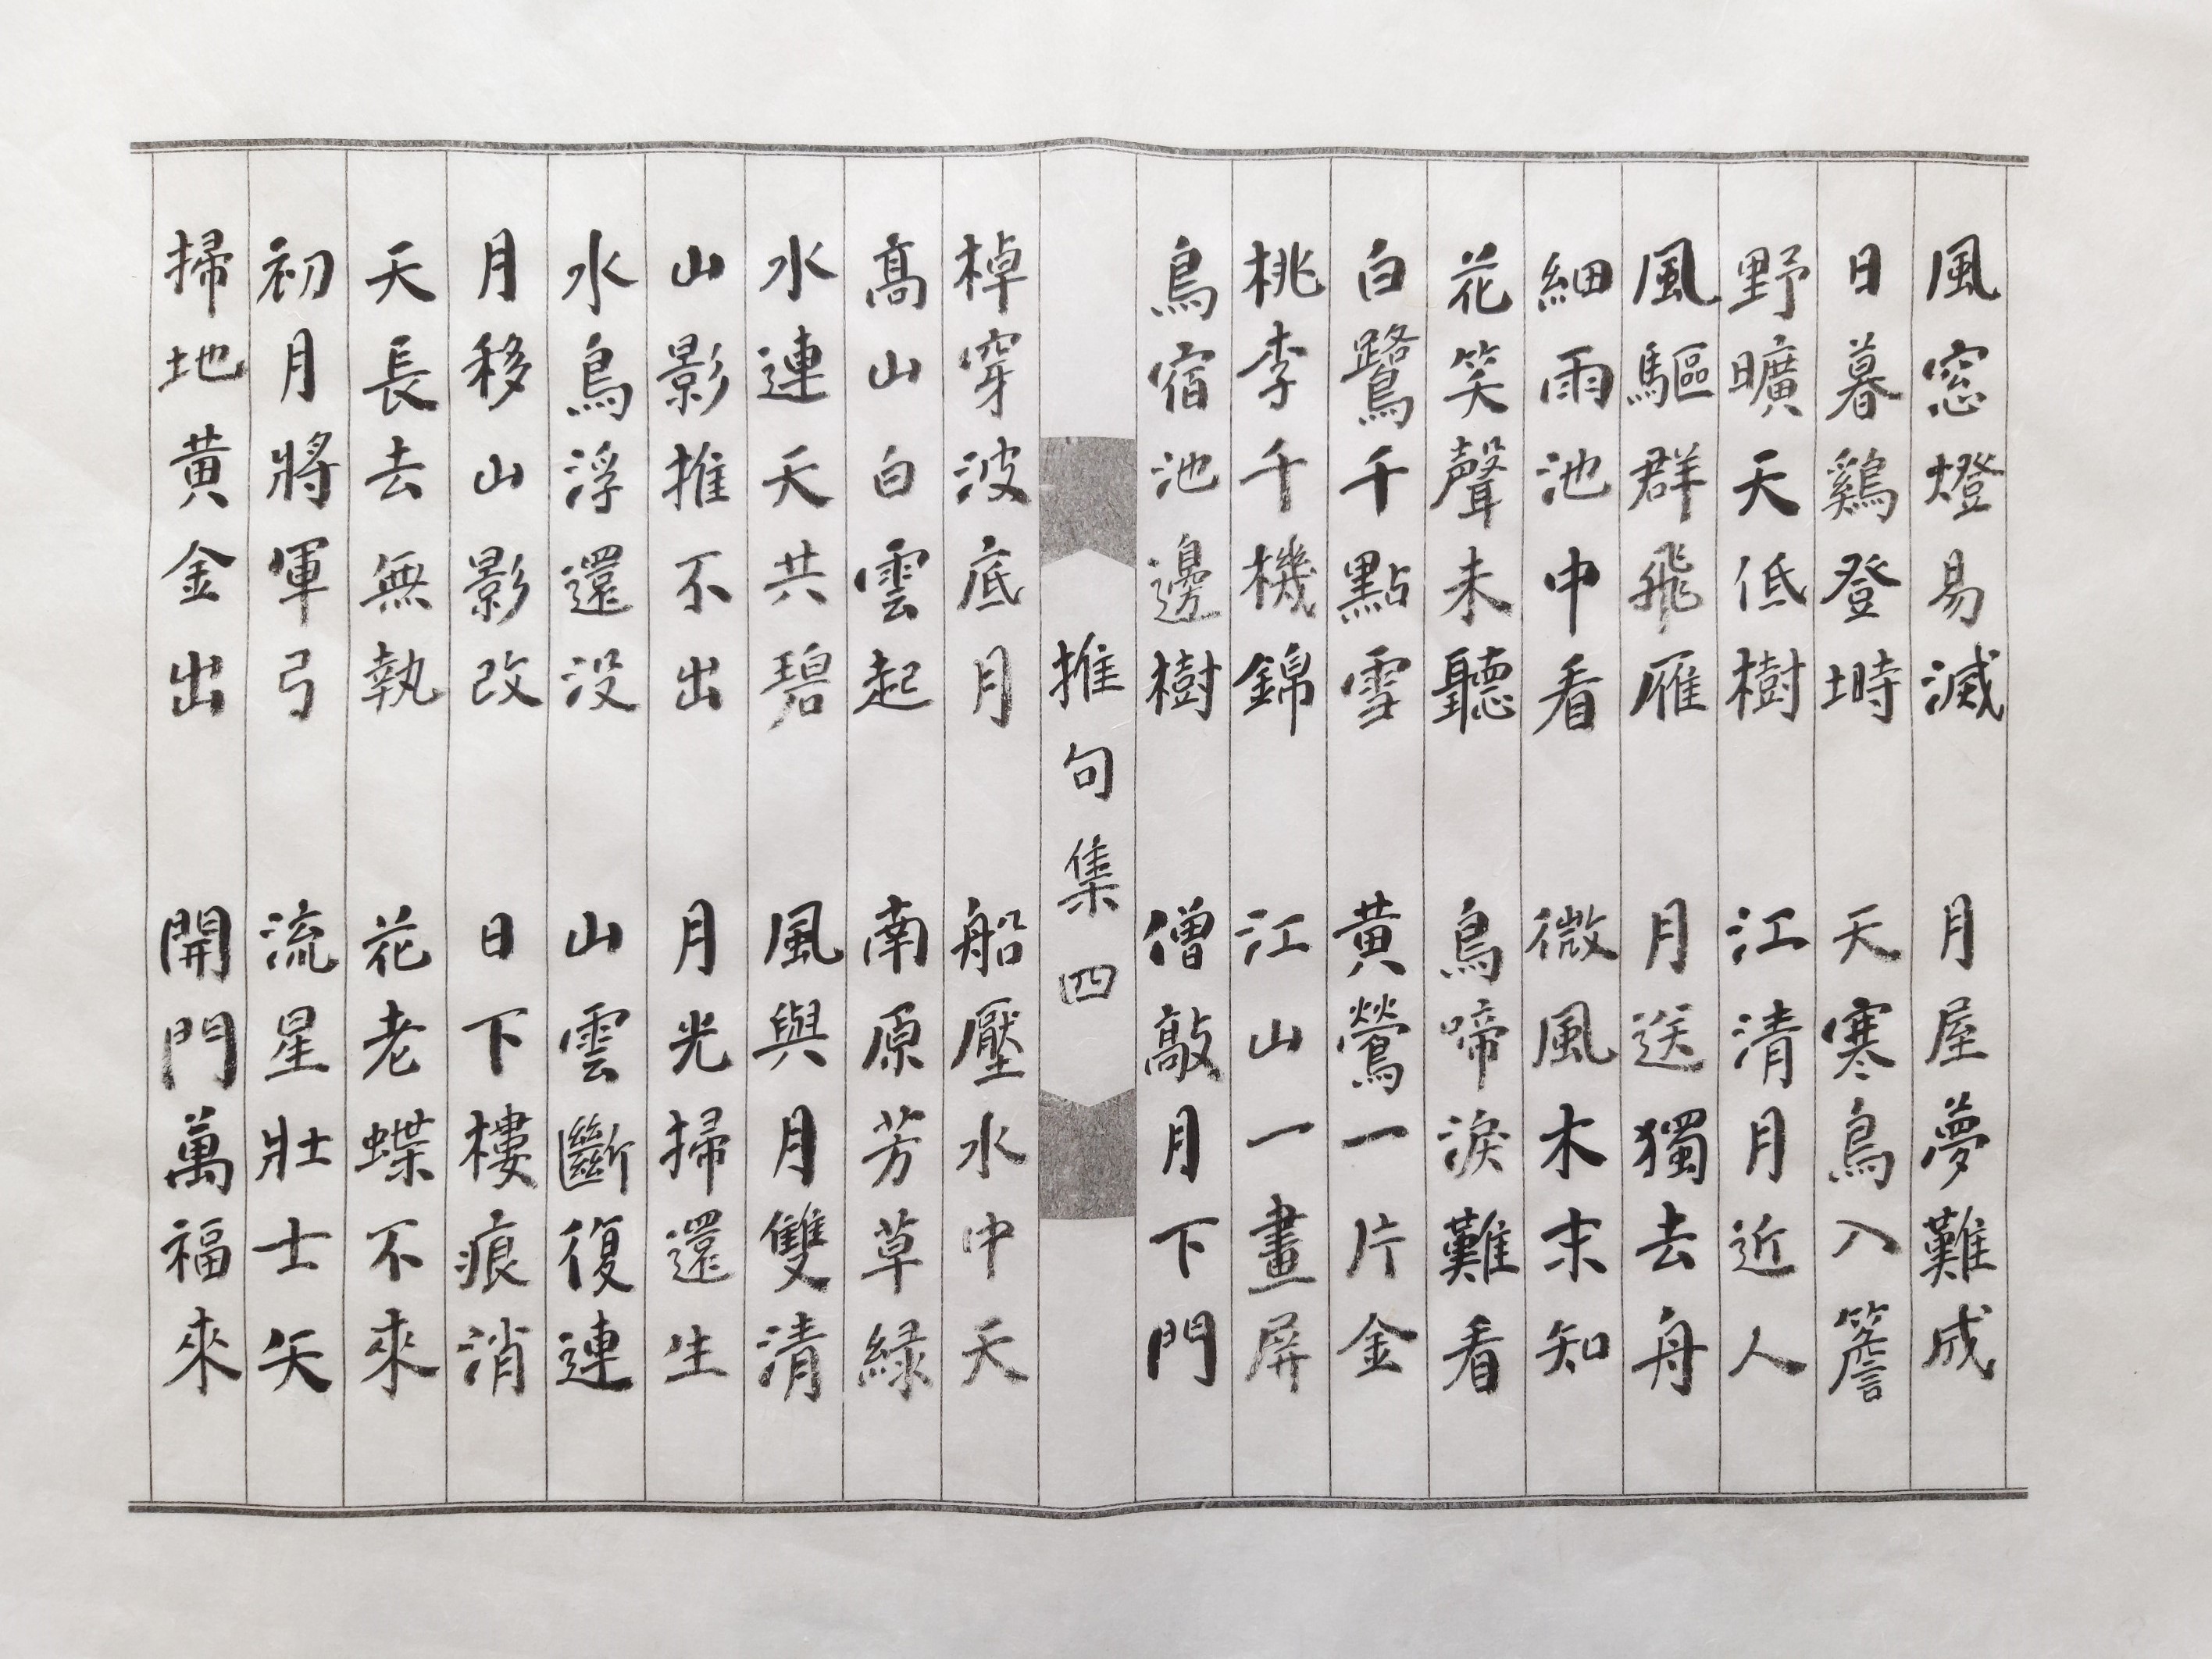 風窓燈易滅 月屋夢難成
日暮鷄登塒 天寒鳥入簷
野曠天低樹 江清月近人
風驅群飛雁 月送獨去舟
細雨池中看 微風木末知
花笑聲未聽 鳥啼淚難看
白鷺千點雪 黄鶯一片金
桃李千機錦 江山一畫屏
鳥宿池邊樹 僧敲月下門
推句集四
棹穿波底月 船壓水中天
髙山白雲起 南原芳草緑
水連天共碧 風與月雙清
山影推不出 月光掃還生
水鳥浮還没 山雲斷復連
月移山影改 日下樓痕消
天長去無執 花老蝶不來
初月將軍弓 流星壯士矢
掃地黄金出 開門萬福來